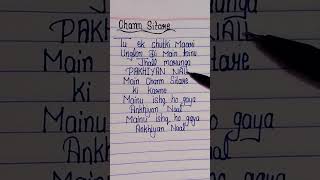 Chann Sitare
Tu ek chutki Maari
Unglan Di Main tainu
Jhall marunga
PAKHIYAN NAL
Main Chann Sitare
ki karne
Mainu ishq ho gaya
Ankhiyan Naal
Mainu ishq ho gaya
Ankhiyan Naal